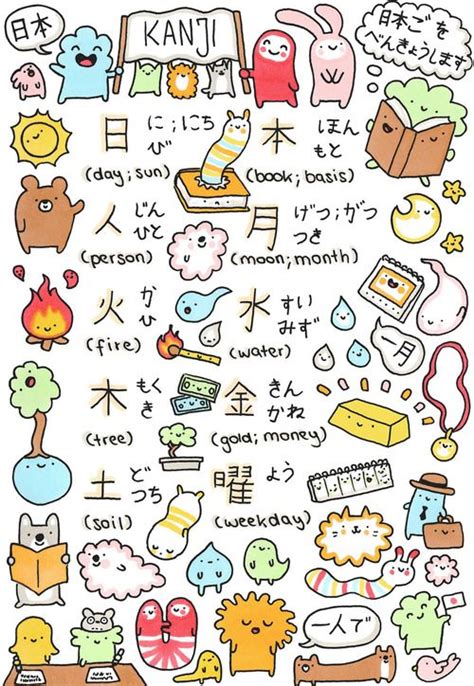 日本
KANJI
日本ごを
べんきょうします
日
に;にち
び
(day;sun)
本
ほん
もと
(book;basis)
人
じん
ひと
(person)
月
げつ;がつ
つき
(moon;month)
火
か
ひ
(fire)
水
すい
みず
(water)
一月
木
もく
き
(tree)
金
きん
かね
(gold;money)
土
ど
つち
(soil)
曜
よう
(weekday)
一人で